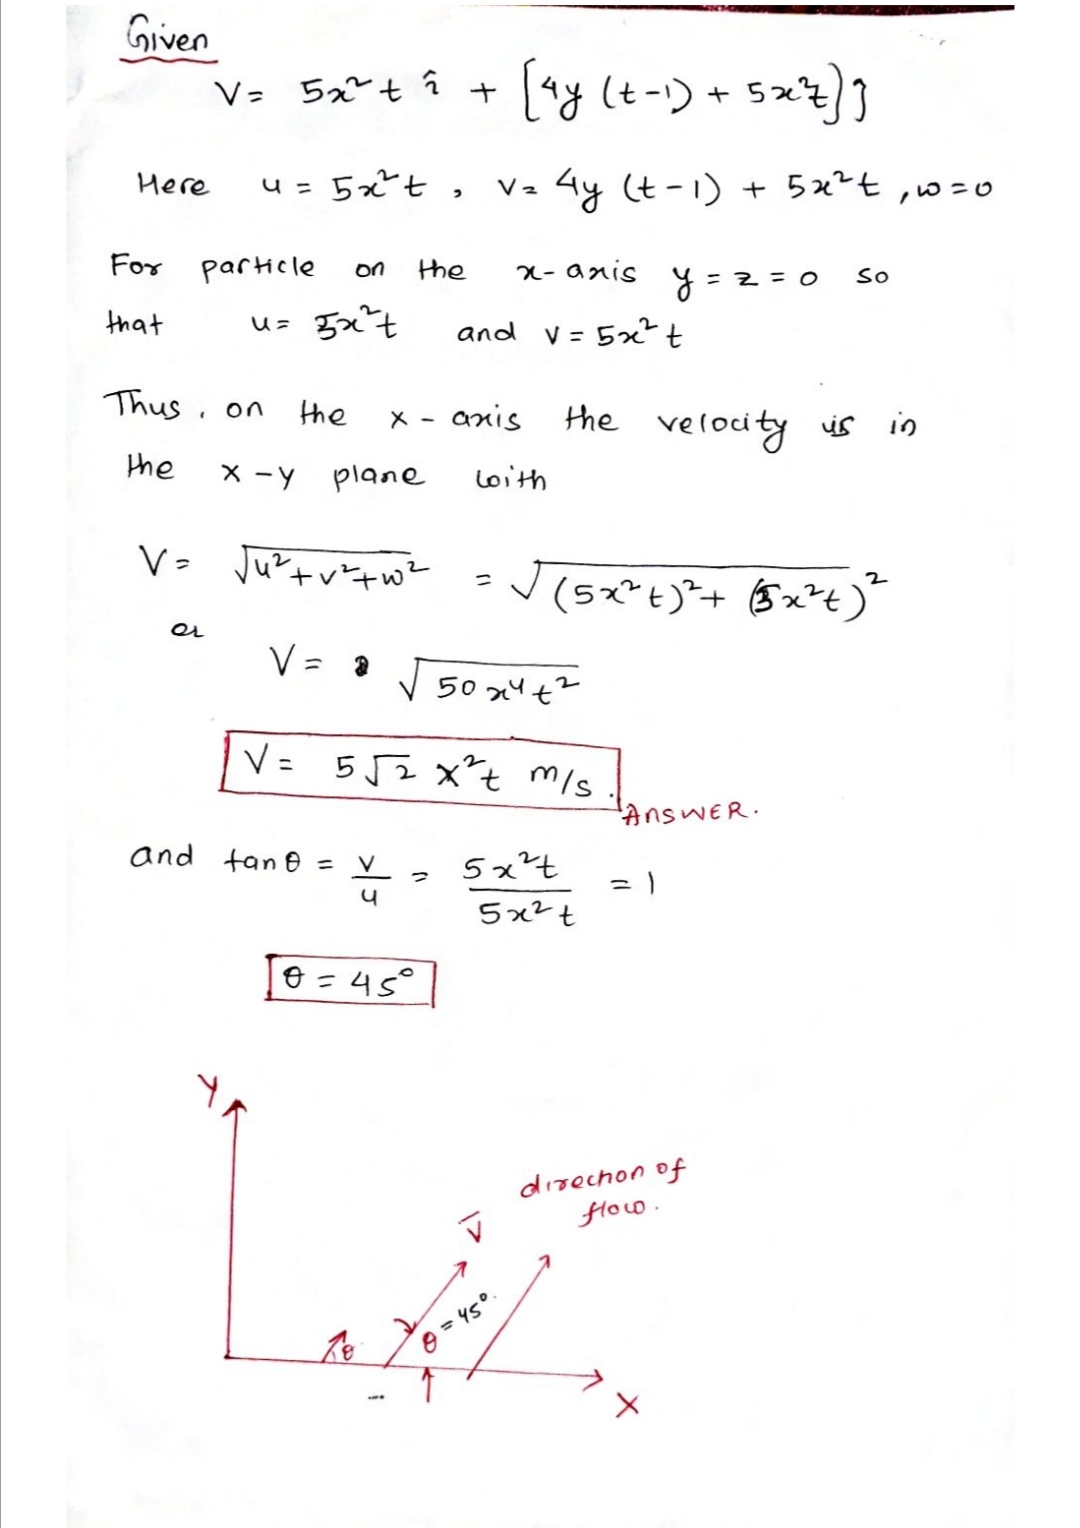 Given
V = 5x² t î + [4y (t-1) + 5x²t] ĵ
Here u = 5x²t , v = 4y (t-1) + 5x²t , w=0
For particle on the x-axis y = z = 0 so
that u = 5x²t and v = 5x²t
Thus, on the x-axis the velocity is in
the x-y plane with
V = √u²+v²+w² = √(5x²t)²+ (5x²t)²
or
V = √50x⁴t²
V = 5√2 x²t m/s.
ANSWER.
and tanθ = v/u = 5x²t/5x²t = 1
θ = 45°
Y
direction of
flow.
V̄
θ = 45°
θ
X